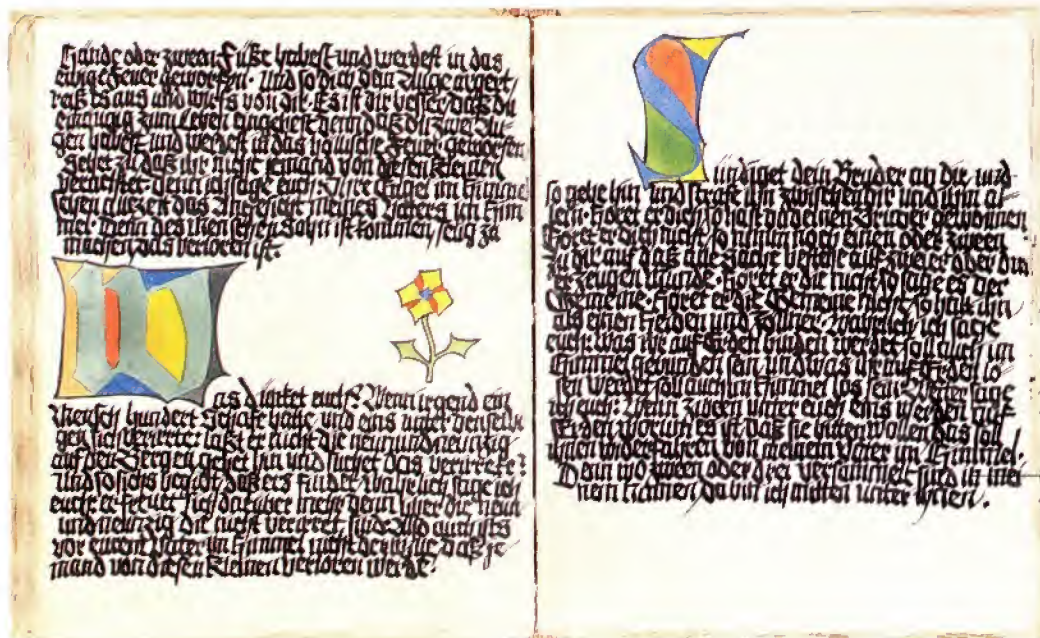 Hände oder zween Füße habest und werdest in das
ewige Feuer geworfen. Und so dich dein Auge ärgert,
reiß es aus und wirfs von dir. Es ist dir besser, daß du
einäugig zum Leben eingehest denn daß du zwei Au-
gen habest und werdest in das höllische Feuer geworfen.
Sehet zu daß ihr nicht jemand von diesen Kleinen
verachtet. denn ich sage euch: Ihre Engel im Himmel
sehen allezeit das Angesicht meines Vaters im Him-
mel. Denn des Menschen Sohn ist kommen, selig zu
machen, das verloren ist.
Was dünket euch? Wenn irgend ein
Mensch hundert Schafe hätte und eins unter densel-
gen sich verirrete: läßt er nicht die neunundneunzig
auf den Bergen, gehet hin und suchet das verirrete?
Und so sichs begibt, daß ers findet, wahrlich sage ich
euch: er freuet sich darüber mehr denn über die neun
und neunzig die nicht verirret sind. Also auch ists
vor eurem Vater im Himmel nicht der Wille, daß je-
mand von diesen Kleinen verloren werde.
Sündiget dein Bruder an dir, und
so gehe hin und strafe ihn zwischen dir und ihm al-
lein. Höret er dich, so hast du deinen Bruder gewonnen
Höret er dich nicht, so nimm noch einen oder zween
zu dir auf daß alle Sache bestehe auf zweier oder drei
er Zeugen Munde. Höret er die nicht so sage es der
Gemeine. Höret er die Gemeine nicht, so halt ihn
als einen Heiden und Zöllner. Wahrlich, ich sage
euch: was ihr auf Erden binden werdet soll auch im
Himmel gebunden sein, und was ihr auf Erden lö-
sen werdet soll auch im Himmel los sein. Weiter sage
ich euch: Wenn zween unter euch eins werden auf
Erden worum es ist daß sie bitten wollen, das soll
ihnen widerfahren von meinem Vater im Himmel.
Denn wo zween oder drei versammelt sind in mei-
nem Namen da bin ich mitten unter ihnen.